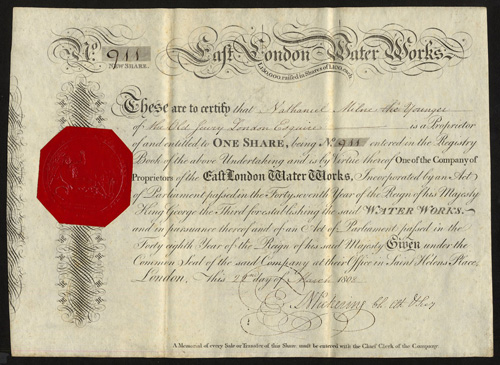 No. 911
NEW SHARE.
East London Water Works.
raised in Shares of £100 each
These are to certify that Nathaniel Milne the Younger
of the Old Jewry London Esquire is a Proprietor
of and entitled to ONE SHARE, being No. 911 entered in the Registry
Book of the above Undertaking and is by Virtue thereof One of the Company of
Proprietors of the EAST LONDON WATER WORKS, Incorporated by an Act
of Parliament passed in the Forty seventh Year of the Reign of his Majesty
King George the Third for establishing the said WATER WORKS.
and in pursuance thereof and of an Act of Parliament passed in the
Forty eighth Year of the Reign of his said Majesty Given under the
Common Seal of the said Company at their Office in Saint Helens Place,
London, This day of 1808
Pickering
A Memorial of every Sale or Transfer of this Share must be entered with the Chief Clerk of the Company